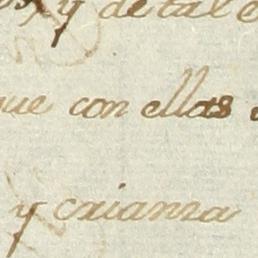 y de tal
que con ellas
y crianza